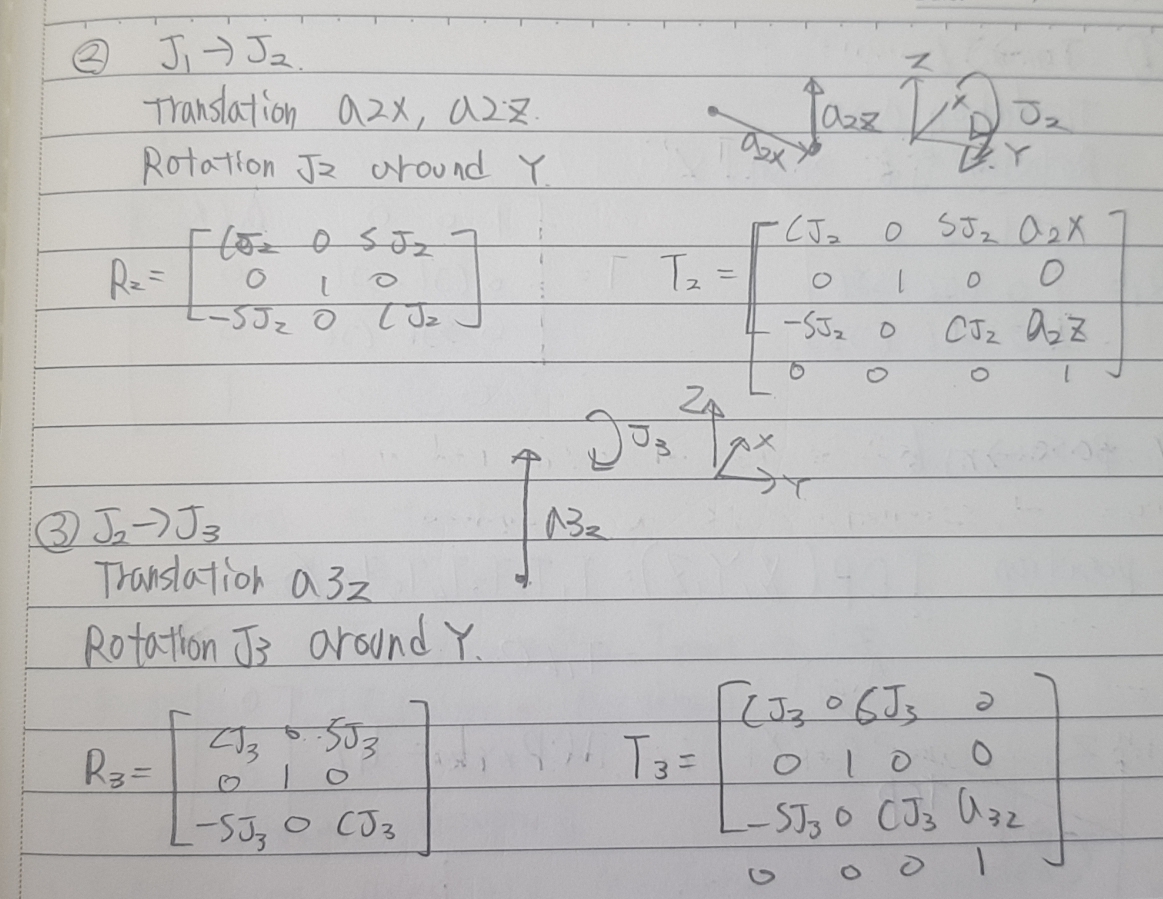 ② J₁→J₂.
Translation a2x, a2z.
Rotation J2 around Y.
a2x a2z Z X Y J₂
R₂= [ CJ₂ 0 SJ₂
0 1 0
-SJ₂ 0 CJ₂ ]
T₂ = [ CJ₂ 0 SJ₂ a₂x
0 1 0 0
-SJ₂ 0 CJ₂ a₂z
0 0 0 1 ]
J₃ Z X Y
a3z
③ J₂→J₃
Translation a3z
Rotation J3 around Y.
R₃= [ CJ₃ 0 SJ₃
0 1 0
-SJ₃ 0 CJ₃ ]
T₃= [ CJ₃ 0 SJ₃ 0
0 1 0 0
-SJ₃ 0 CJ₃ a₃z
0 0 0 1 ]